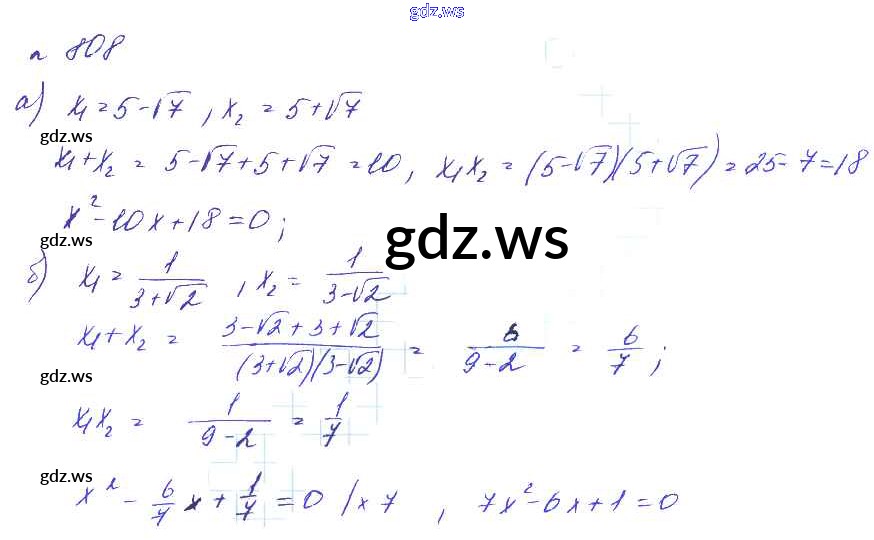 gdz.ws
n 808
а) x₁ = 5 - √7 , x₂ = 5 + √7
gdz.ws
x₁ + x₂ = 5 - √7 + 5 + √7 = 10, x₁x₂ = (5 - √7)(5 + √7) = 25 - 7 = 18
x² - 10x + 18 = 0;
gdz.ws
gdz.ws
б) x₁ = 1/(3 + √2) , x₂ = 1/(3 - √2)
x₁ + x₂ = (3 - √2 + 3 + √2)/((3 + √2)(3 - √2)) = 6/(9 - 2) = 6/7 ;
gdz.ws
x₁x₂ = 1/(9 - 2) = 1/7
gdz.ws
x² - 6/7 x + 1/7 = 0 /× 7 , 7x² - 6x + 1 = 0